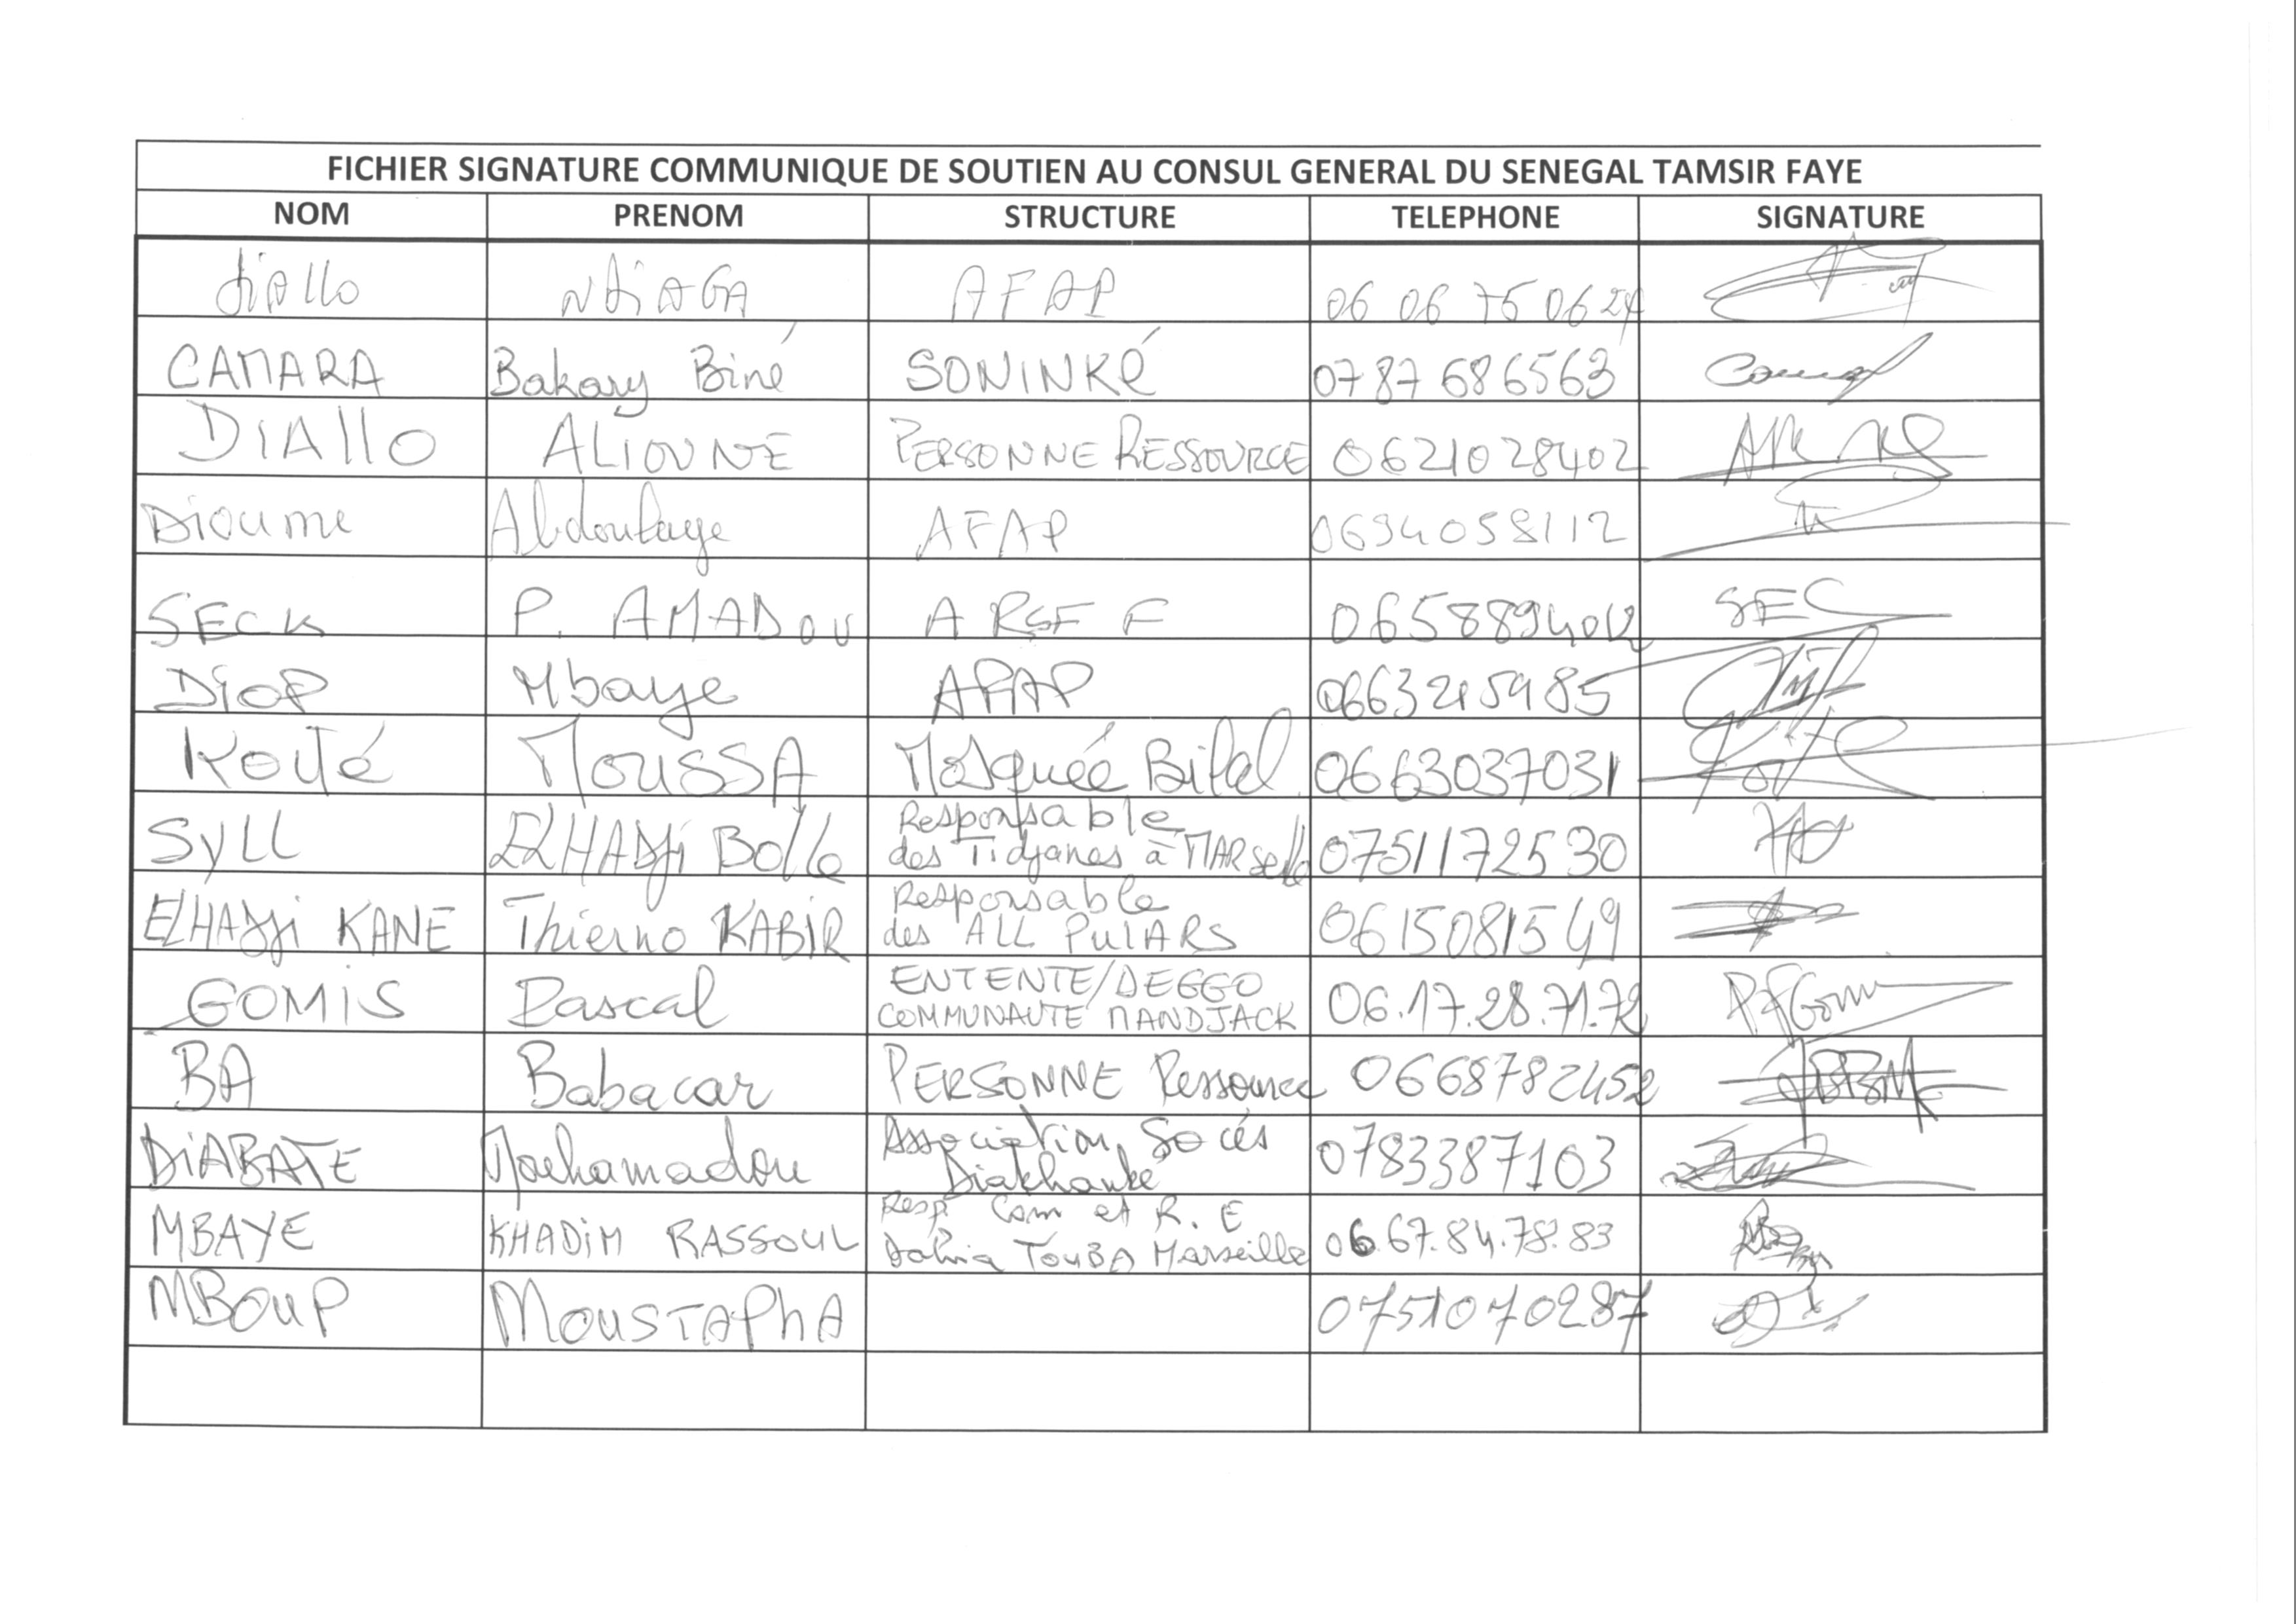 FICHIER SIGNATURE COMMUNIQUE DE SOUTIEN AU CONSUL GENERAL DU SENEGAL TAMSIR FAYE
NOM PRENOM STRUCTURE TELEPHONE SIGNATURE
diallo NdiAGA AFAP 06 06 75 06 24
CAMARA Bakary Biné SONINKé 0787686563
DIAllO ALIOUNE PERSONNE RESSOURCE 0621028402
Dioume Abdoulaye AFAP 0694058112
SECK P. AMADOU ARSF F 0658894012 SEC
DioP Mbaye AFAP 0663215985
Koité MOUSSA Mosquée Bilal 0663037031
SYLL ELHADJi Bolle Responsable
des Tidjanes à MARSeille 0751172530
ELHADJi KANE Thierno KABIR Responsable
des ALL PulARS 0615081549
GOMIS Pascal ENTENTE/DEGGO
COMMUNAUTE MANDJACK 06.17.28.71.72 P.Gomis
BA Babacar PERSONNE Ressource 0668782452
DiABATE Mouhamadou Association Socés
Diakhanké 0783387103
MBAYE KHADIM RASSOUL Resp Com et R. E
Dahia TOUBA Marseille 06.67.84.78.83
MBOUP MOUSTAPhA 0751070287